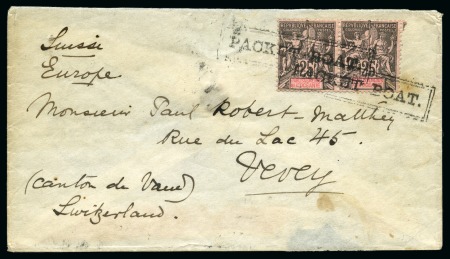 Suisse
Europe
RÉPUBLIQUE FRANÇAISE
25
RÉPUBLIQUE FRANÇAISE
25
PACKET BOAT.
PACKET BOAT.
Monsieur Paul Robert-Matthey
Rue du Lac 45.
Vevey
(Canton de Vaud)
Switzerland.